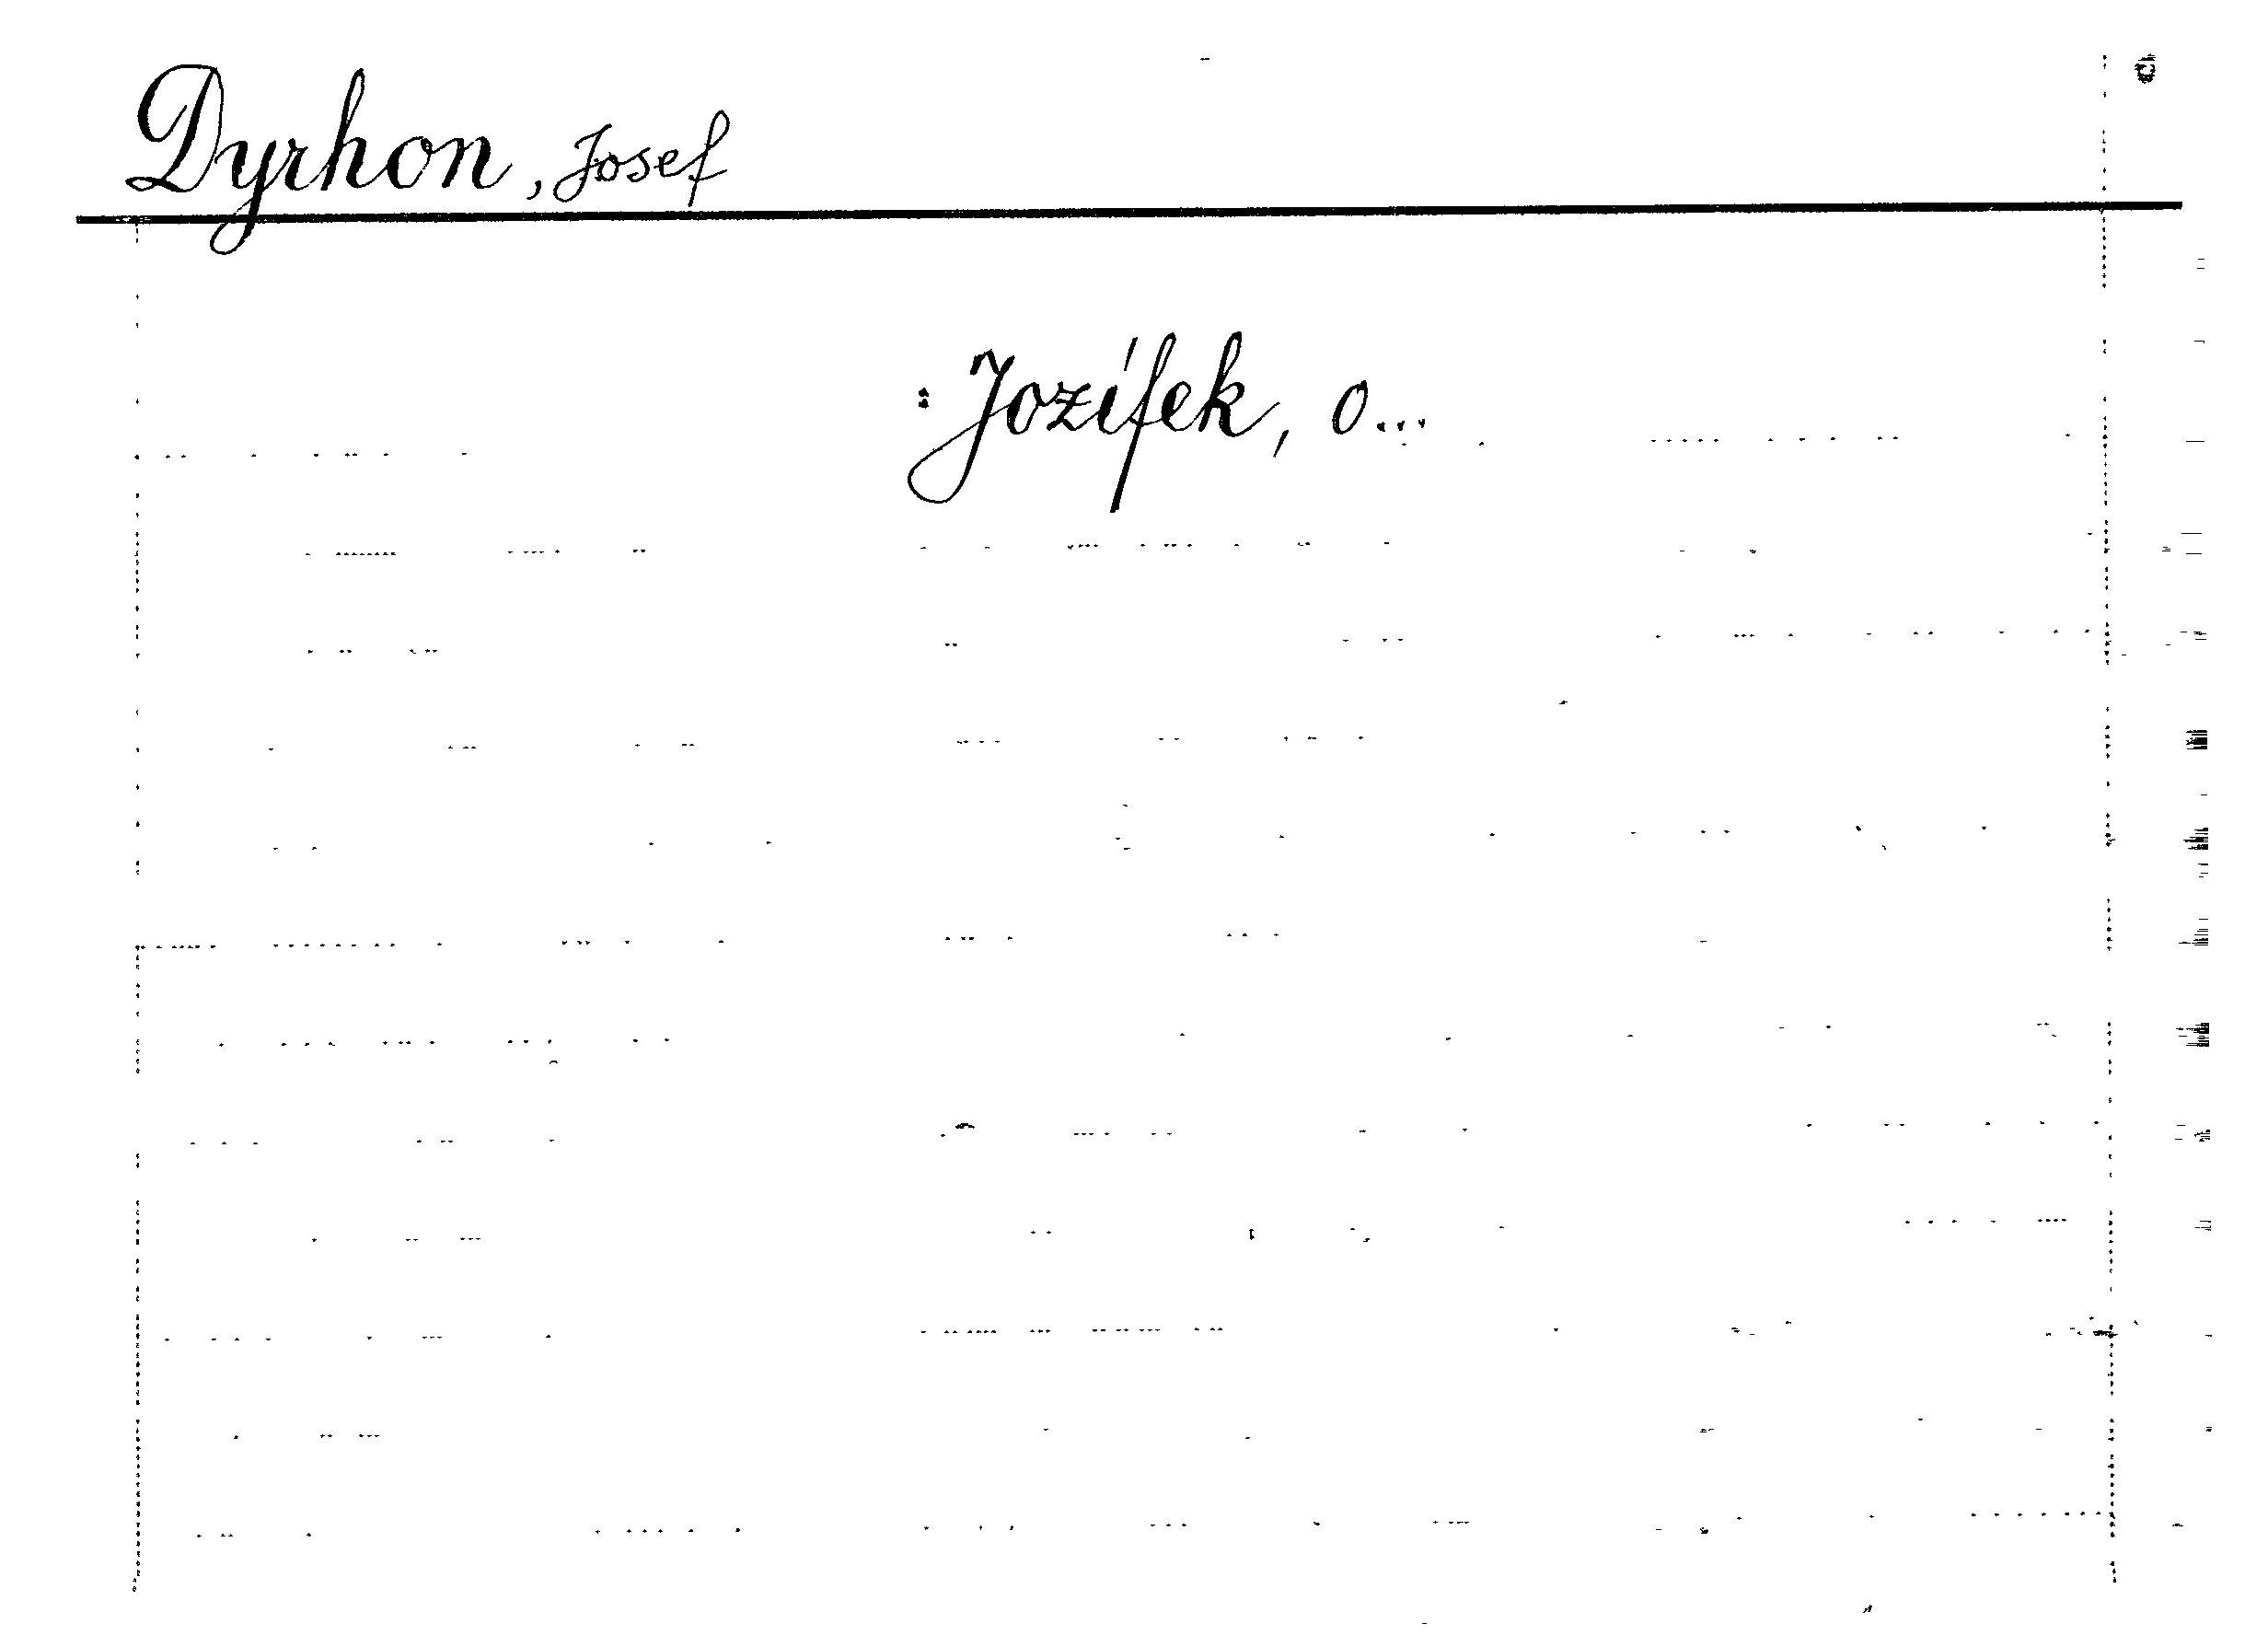 Dyrhon, Josef
: Jozífek, o...